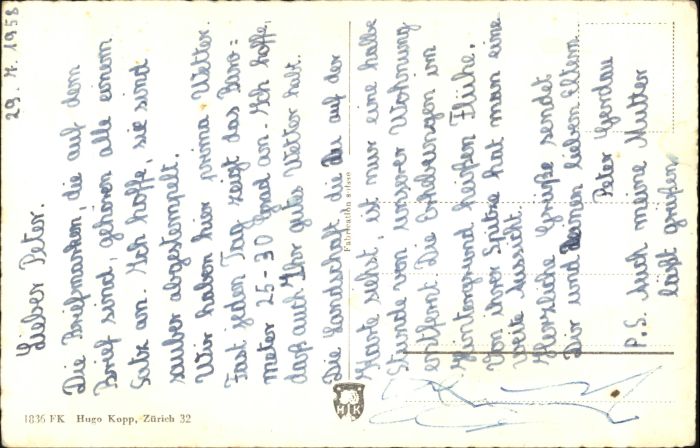 29.7.1958
Lieber Peter.
Die Briefmarken, die auf dem
Brief sind, gehören alle einem
Satz an. Ich hoffe, sie sind
sauber abgestempelt.
Wir haben hier prima Wetter.
Fast jeden Tag zeigt das Baro=
meter 25-30 Grad an. Ich hoffe,
daß auch Ihr gutes Wetter habt.
Die Landschaft die Du auf der
Karte siehst, ist nur eine halbe
Stunde von unserer Wohnung
entfernt. Die Erhebungen im
Hintergrund heißen Flühe.
Von ihrer Spitze hat man eine
weite Aussicht.
Herzliche Grüße sendet
Dir und Deinen lieben Eltern
Peter Gerdau
P.S. Auch meine Mutter
läßt grüßen.
Fabrication suisse
HK
1836 FK Hugo Kopp, Zürich 32